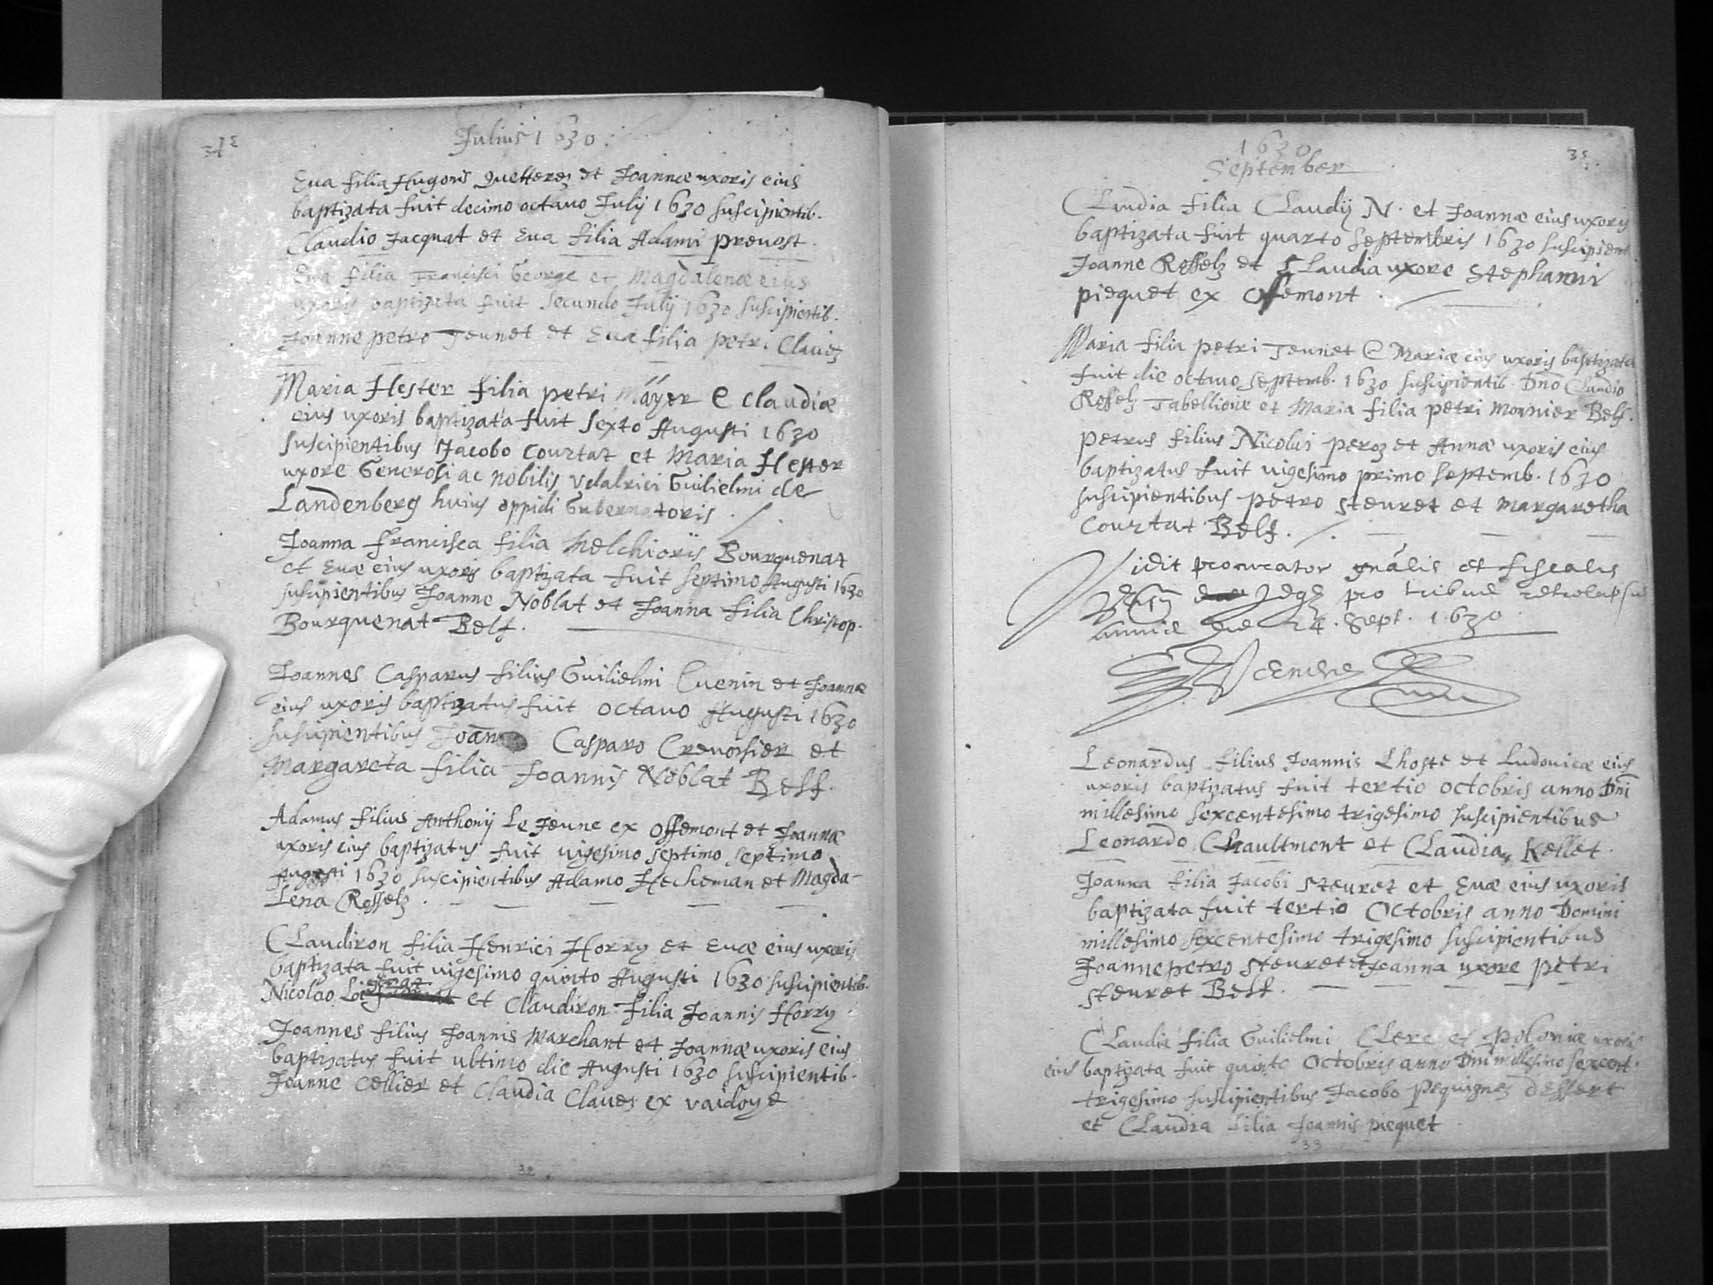 34
Julius 1630.
Eua filia Hugonis Quetterez et Joannæ uxoris eius
baptizata fuit decimo octauo Julij 1630 suscipientib.
Claudio Jacquat et Eua filia Adami preuost.
Eua filia Francisci George et Magdalenæ eius
uxoris baptizata fuit secundo Julij 1630 suscipientib.
Joanne petro Jeunet et Eua filia petri Clauez
Maria Hester filia petri Mäyer & claudiæ
eius uxoris baptizata fuit sexto Augusti 1630
suscipientibus Jacobo Courtat et Maria Hester
uxore Generosi ac nobilis Vdalrici Guilielmi de
Landenberg huius oppidi Gubernatoris
Joanna francisca filia Melchioris Bourquenat
et Euæ eius uxoris baptizata fuit septimo Augusti 1630
suscipientibus Joanne Noblat et Joanna filia Christop.
Bourquenat Belf.
Joannes Casparus filius Guilielmi Cuenin et Joannæ
eius uxoris baptizatus fuit octauo Augusti 1630
suscipientibus Casparo Creuoisier et
Margareta filia Joannis Noblat Belf.
Adamus filius Anthonij Le Jeune ex Offemont et Joannæ
uxoris eius baptizatus fuit uigesimo septimo septimo
Augusti 1630 suscipientibus Adamo Heckeman et Magda-
lena Resselz.
Claudiron filia Henrici Horry et Euæ eius uxoris
baptizata fuit uigesimo quinto Augusti 1630 suscipientib.
Nicolao et Claudiron filia Joannis Horry
Joannes filius Joannis Marchant et Joannæ uxoris eius
baptizatus fuit ultimo die Augusti 1630 suscipientib.
Joanne Cellier et Claudia Clauez ex vaudoye
32
1630
35.
September
Claudia filia Claudij N. et Joannæ eius uxoris
baptizata fuit quarto septembris 1630 suscipient
Joanne Resselz et Claudia uxore Stephanni
piequet ex Offemont.
Maria filia petri Jeunet & Mariæ eius uxoris baptizata
fuit die octauo septemb. 1630 suscipientib. Dno Claudio
Resselz Tabellione et Maria filia petri Monnier Belf.
Petrus filius Nicolai peroz et Annæ uxoris eius
baptizatus fuit uigesimo primo septemb. 1630
suscipientibus petro steuret et Margaretha
Courtat Belf.
Vidit procurator gnâlis et fiscalis
pro
die 24. Sept. 1630
Leonardus filius Joannis Lhoste et Ludouicæ eius
uxoris baptizatus fuit tertio octobris anno Dni
millesimo sexcentesimo trigesimo suscipientibus
Leonardo Chaultmont et Claudia Kellet.
Joanna filia Jacobi steuret et Euæ eius uxoris
baptizata fuit tertio Octobris anno Domini
millesimo sexcentesimo trigesimo suscipientibus
Joanne petro steuret et Joanna uxore petri
steuret Belf.
Claudia filia Guilielmi Clerc et Poloniæ uxoris
eius baptizata fuit quinto Octobris anno Dni millesimo sexcent.
trigesimo suscipientibus Jacobo Pequignez dessert
et Claudia filia Joannis piequet
33